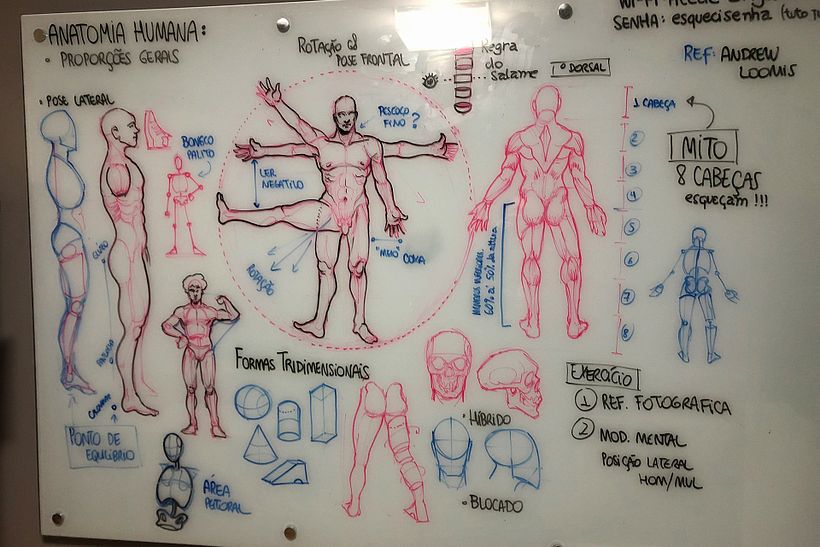 ANATOMIA HUMANA:
• PROPORÇÕES GERAIS
ROTAÇÃO
POSE FRONTAL
Regra
do
salame
DORSAL
SENHA: esquecisenha
REF: ANDREW
LOOMIS
• POSE LATERAL
BONECO
PALITO
PESCOÇO
FINO?
LER
NEGATIVO
"MEIO" COXA
ROTAÇÃO
60% a 50% da altura
1 CABEÇA
2
3
4
5
6
7
8
MITO
8 CABEÇAS
esqueçam !!!
PONTO DE
EQUILÍBRIO
FORMAS TRIDIMENSIONAIS
• HÍBRIDO
• BLOCADO
ÁREA
PEITORAL
EXERCÍCIO
1 REF. FOTOGRAFICA
2 MOD. MENTAL
POSIÇÃO LATERAL
HOM/MUL